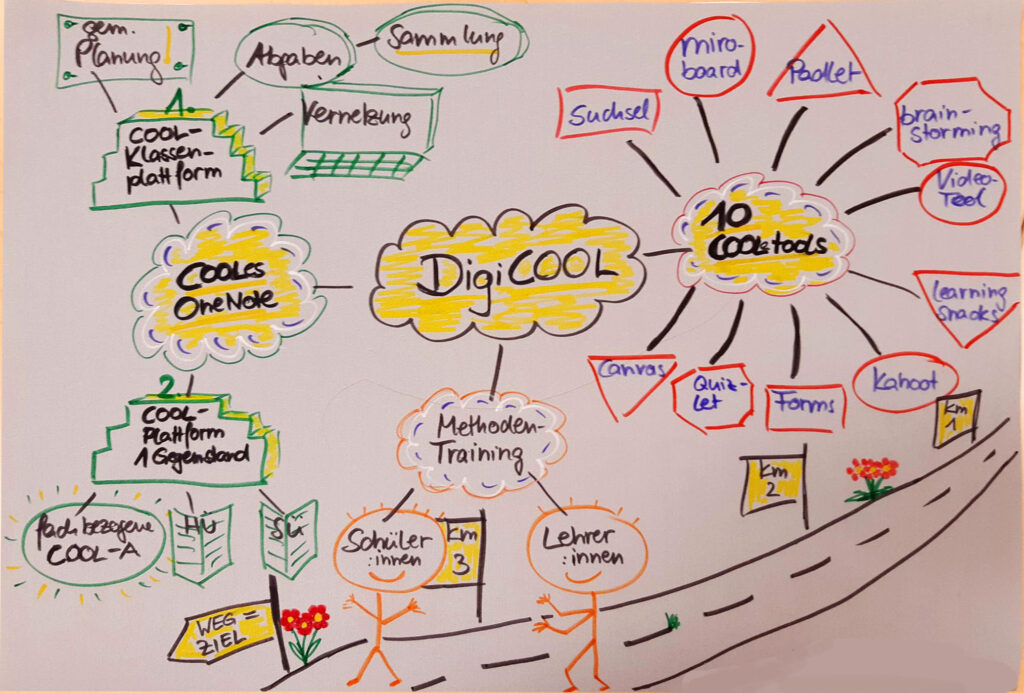 gem.
Planung
Abgaben
Sammlung
Vernetzung
1.
COOL-
Klassen-
plattform
COOLes
OneNote
2.
COOL-
Plattform
1 Gegenstand
fachbezogene
COOL-A
HÜ
SÜ
DigiCOOL
Methoden-
Training
Schüler
:innen
Lehrer
:innen
10
COOLe tools
Suchsel
miro-
board
Padlet
brain-
storming
Video-
Tool
learning
snacks
Kahoot
Forms
Quiz-
let
Canvas
Km
1
Km
2
Km
3
WEG =
ZIEL